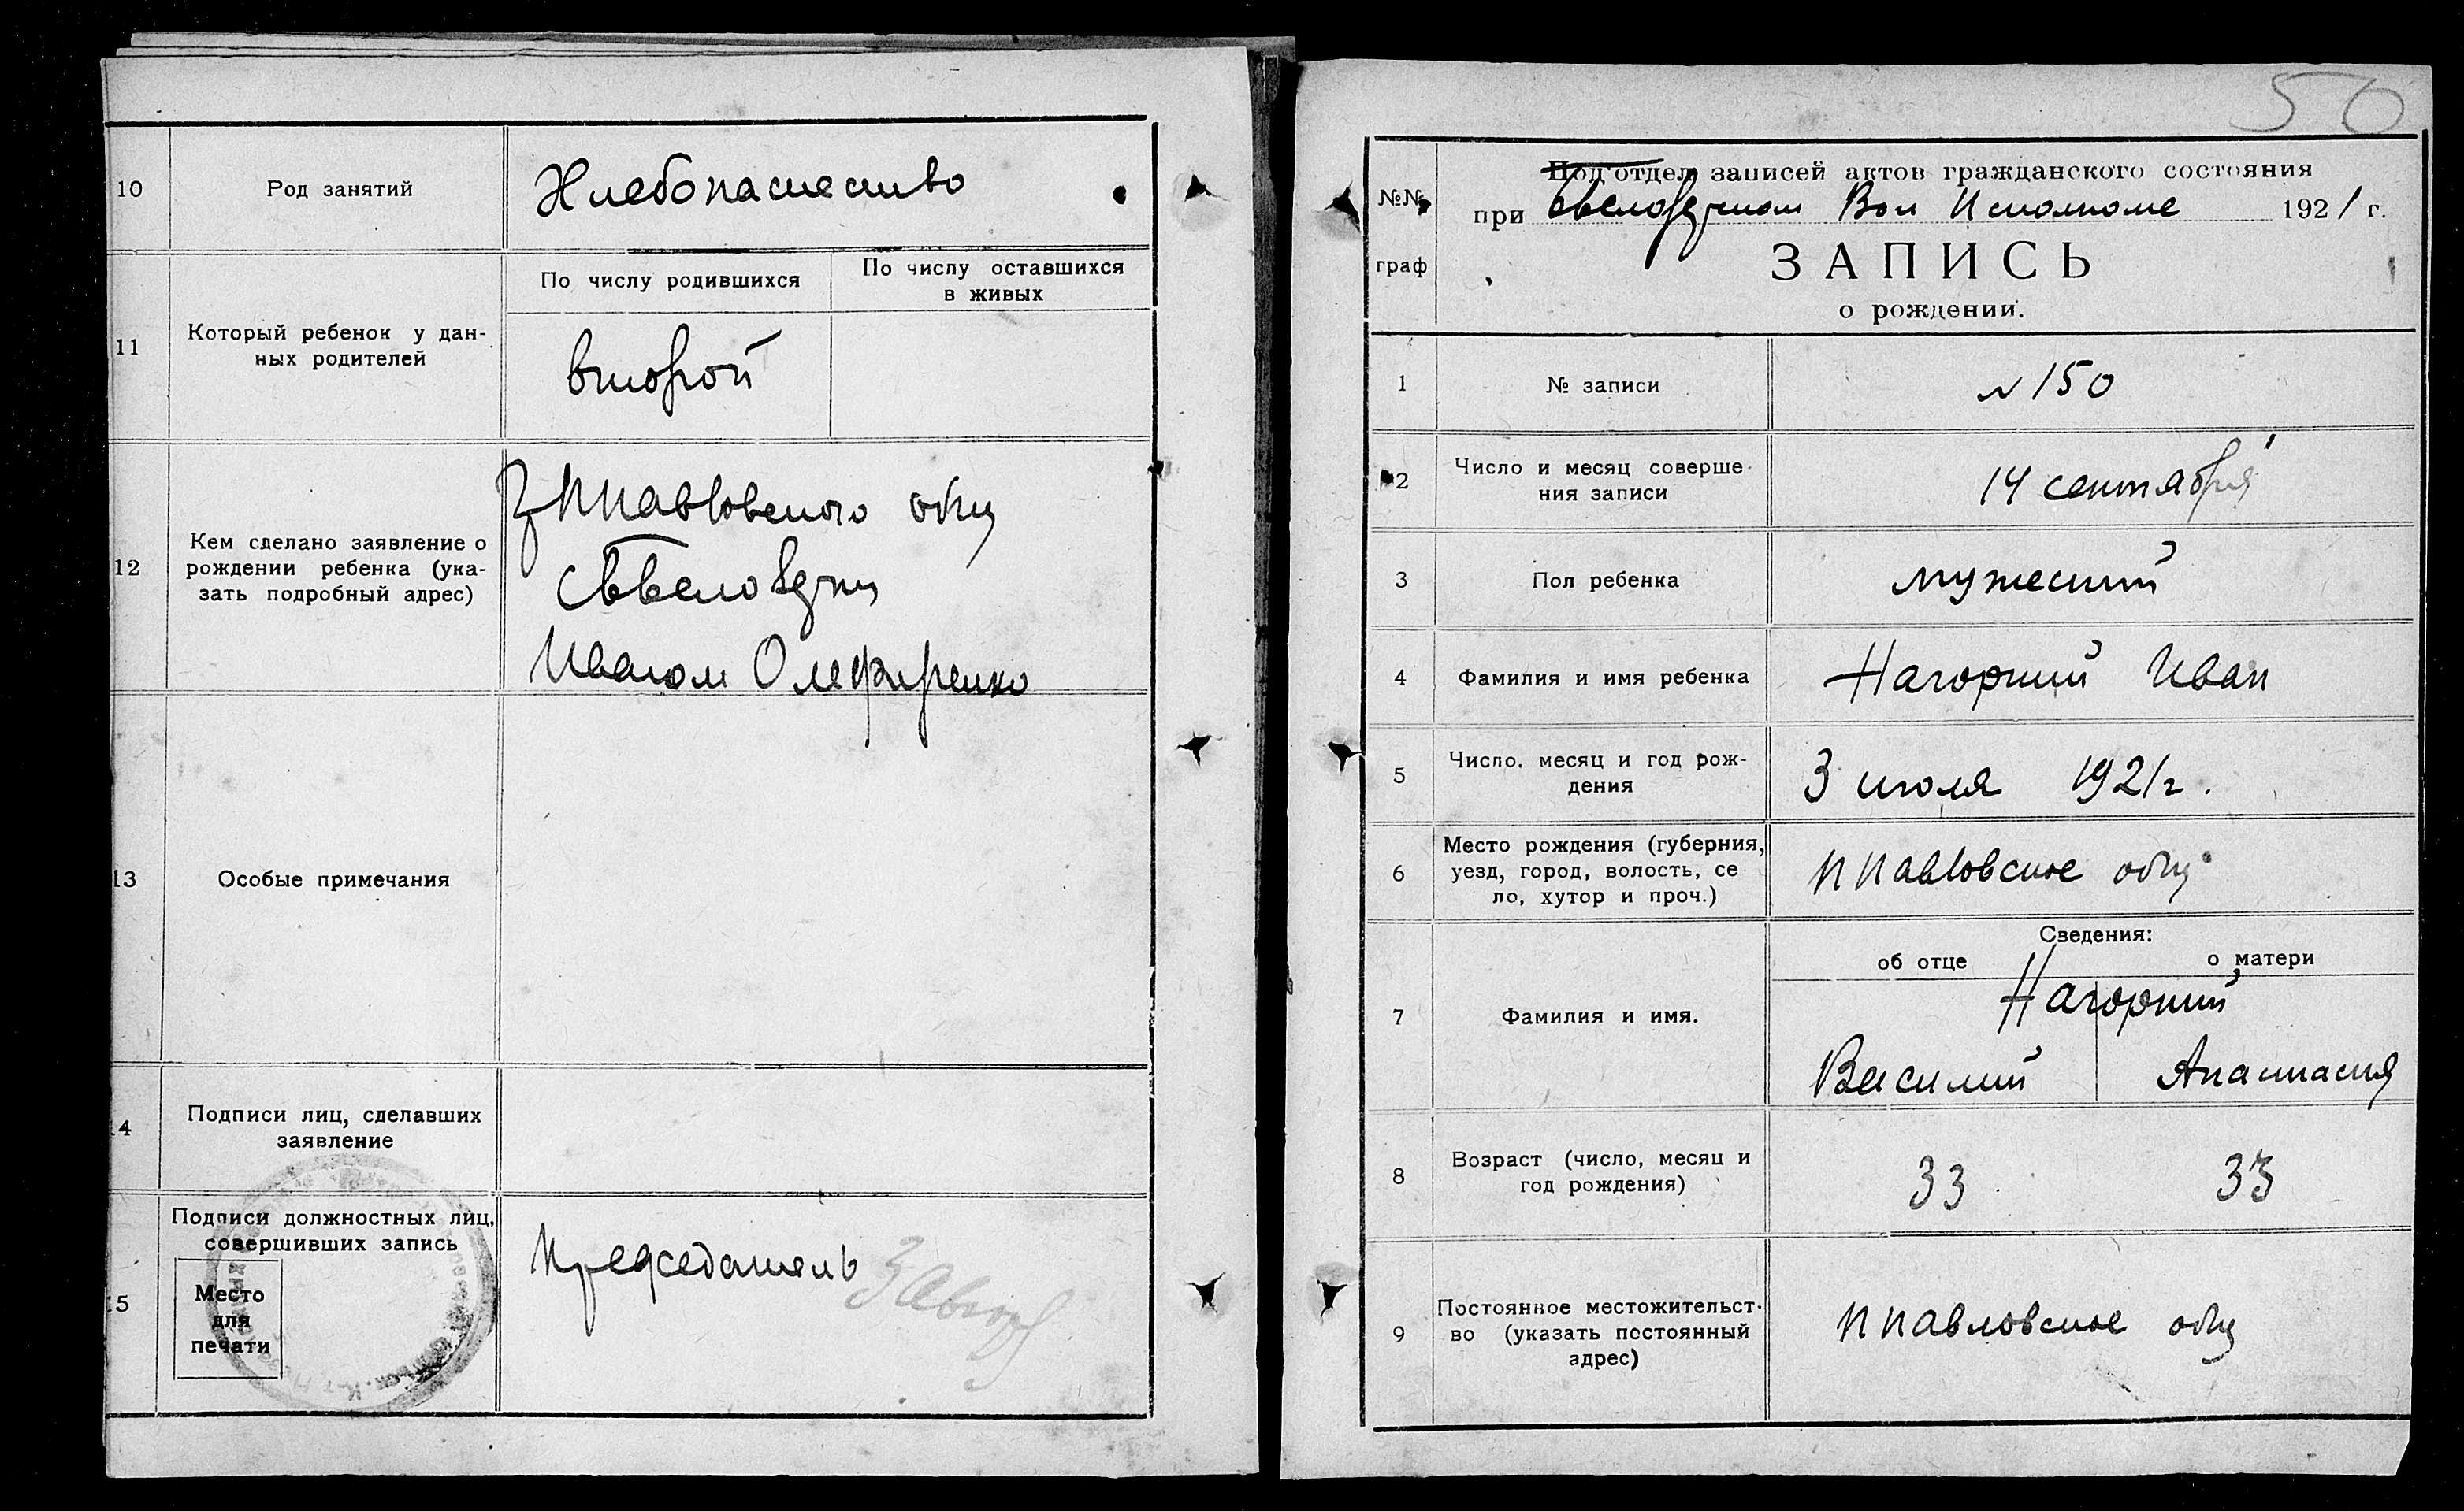 10
Род занятий
Хлебопашество
11
Который ребенок у дан-
ных родителей
По числу родившихся
По числу оставшихся
в живых
второй
12
Кем сделано заявление о
рождении ребенка (ука-
зать подробный адрес)
ППавловского общ
Иваном Олефиренко
13
Особые примечания
4
Подписи лиц, сделавших
заявление
5
Подписи должностных лиц,
совершивших запись
Место
для
печати
Председатель
50
№№
граф
Подотдел записей актов гражданского состояния
при Вол Исполкоме 1921 г.
ЗАПИСЬ
о рождении.
1
№ записи
№ 150
2
Число и месяц соверше-
ния записи
14 сентября
3
Пол ребенка
мужеский
4
Фамилия и имя ребенка
Нагорний Иван
5
Число, месяц и год рож-
дения
3 июля 1921 г.
6
Место рождения (губерния,
уезд, город, волость, се
ло, хутор и проч.)
ППавловское общ
Сведения:
об отце
о матери
7
Фамилия и имя.
Нагорний
Василий
Анастасия
8
Возраст (число, месяц и
год рождения)
33
33
9
Постоянное местожительст-
во (указать постоянный
адрес)
ППавловское общ